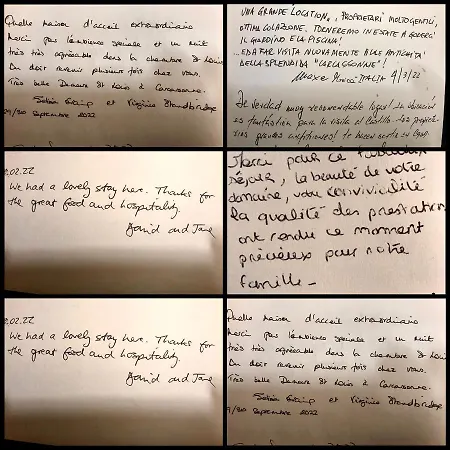 Quelle maison d'accueil extraordinaire
Merci pas l'ambience speciale et un nuit
très très agréeable dans la chambre St Louis
On doit revenir plusieurs fois chez vous.
Très belle Demeure St Louis à Carcassonne.
et Virginie
9/30 Septembre 2022
UNA GRANDE LOCATION, PROPRIETARI MOLTO GENTILI,
OTTIMA COLAZIONE. TORNEREMO IN ESTATE A GODERCI
IL GIARDINO E LA PISCINA!
...E DA FAR VISITA NUOVAMENTE ALLE ANTICHITA'
DELLA SPLENDIDA "CARCASSONNE"!
ITALIA 4/3/22
De verdad muy recomendable lugar! La ubicación
es fantástica para la visita al Castillo. Los propieta-
rios grandes anfitriones!
2.02.22
We had a lovely stay here. Thanks for
the great food and hospitality.
David and Jane
Merci pour ce
séjour, la beauté de votre
domaine, votre convivialité
la qualité des prestation
ont rendu ce moment
précieux pour notre
famille -
2.02.22
We had a lovely stay here. Thanks for
the great food and hospitality.
David and Jane
Quelle maison d'accueil extraordinaire
Merci pas l'ambience speciale et un nuit
très très agréeable dans la chambre St Louis
On doit revenir plusieurs fois chez vous.
Très belle Demeure St Louis à Carcassonne.
et Virginie
9/30 Septembre 2022